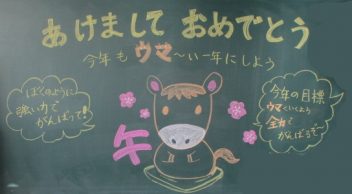 あけまして おめでとう
今年も ウマ〜い一年にしよう
ぼくのように
強い力で
がんばって!
午
今年の目標
ウマくいくよう
全力で
がんばるぞー